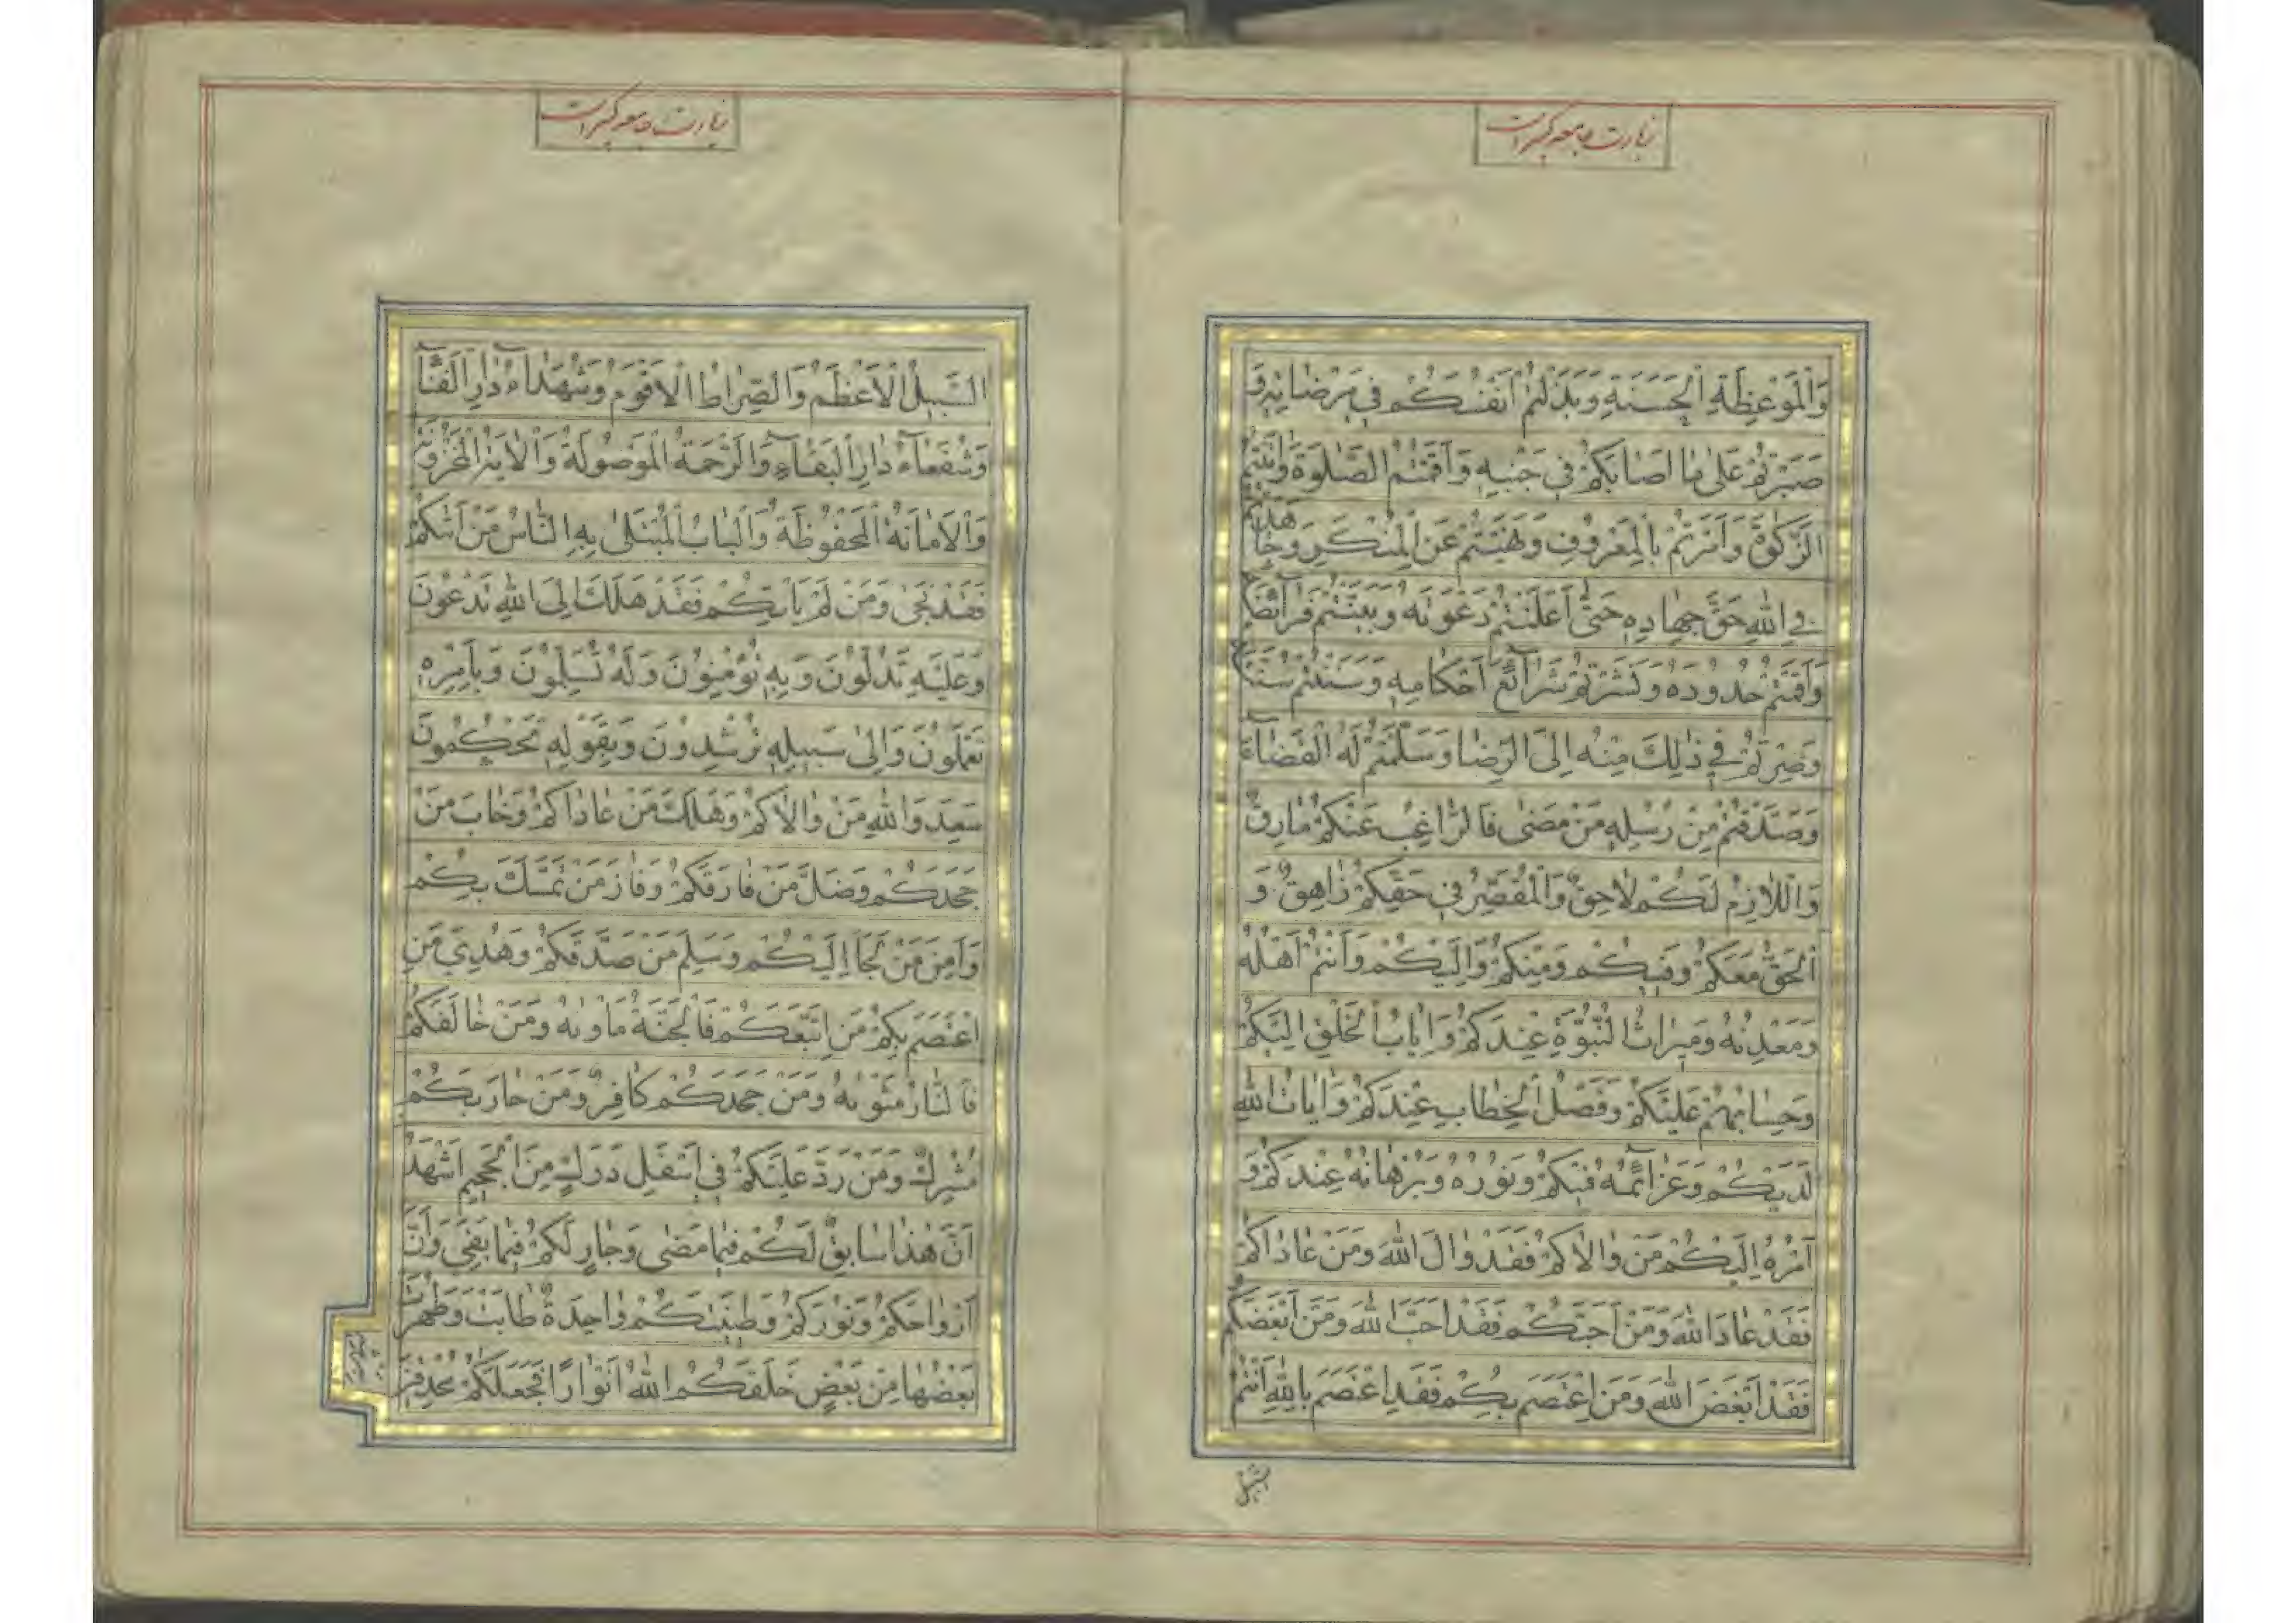 زیارت جامعه کبیر است
وَالْمَوْعِظَةِ الْحَسَنَةِ وَبَذَلْتُمْ اَنْفُسَكُمْ فِي مَرْضَاتِهِ وَ
صَبَرْتُمْ عَلىٰ مَا اَصَابَكُمْ فِي جَنْبِهِ وَاَقَمْتُمُ الصَّلٰوةَ وَاٰتَيْتُمُ
الزَّكٰوةَ وَاَمَرْتُمْ بِالْمَعْرُوفِ وَنَهَيْتُمْ عَنِ الْمُنْكَرِ وَجَاهَدْتُمْ
فِي اللهِ حَقَّ جِهَادِهِ حَتّٰى اَعْلَنْتُمْ دَعْوَتَهُ وَبَيَّنْتُمْ فَرَآئِضَهُ
وَاَقَمْتُمْ حُدُودَهُ وَنَشَرْتُمْ شَرَآئِعَ اَحْكَامِهِ وَسَنَنْتُمْ سُنَّتَهُ
وَصِرْتُمْ فِي ذٰلِكَ مِنْهُ اِلَى الرِّضَا وَسَلَّمْتُمْ لَهُ الْقَضَآءَ
وَصَدَّقْتُمْ مِنْ رُسُلِهِ مَنْ مَضىٰ فَالرَّاغِبُ عَنْكُمْ مَارِقٌ
وَاللَّازِمُ لَكُمْ لَاحِقٌ وَالْمُقَصِّرُ فِي حَقِّكُمْ زَاهِقٌ وَ
الْحَقُّ مَعَكُمْ وَفِيكُمْ وَمِنْكُمْ وَاِلَيْكُمْ وَاَنْتُمْ اَهْلُهُ
وَمَعْدِنُهُ وَمِيرَاثُ النُّبُوَّةِ عِنْدَكُمْ وَاِيَابُ الْخَلْقِ اِلَيْكُمْ
وَحِسَابُهُمْ عَلَيْكُمْ وَفَصْلُ الْخِطَابِ عِنْدَكُمْ وَاٰيَاتُ اللهِ
لَدَيْكُمْ وَعَزَآئِمُهُ فِيكُمْ وَنُورُهُ وَبُرْهَانُهُ عِنْدَكُمْ وَ
اَمْرُهُ اِلَيْكُمْ مَنْ وَالَاكُمْ فَقَدْ وَالَ اللهَ وَمَنْ عَادَاكُمْ
فَقَدْ عَادَ اللهَ وَمَنْ اَحَبَّكُمْ فَقَدْ اَحَبَّ اللهَ وَمَنْ اَبْغَضَكُمْ
فَقَدْ اَبْغَضَ اللهَ وَمَنِ اعْتَصَمَ بِكُمْ فَقَدِ اعْتَصَمَ بِاللهِ اَنْتُمُ
زیارت جامعه کبیر است
السَّبِيلُ الْاَعْظَمُ وَالصِّرَاطُ الْاَقْوَمُ وَشُهَدَآءُ دَارِ الْفَنَآءِ
وَشُفَعَآءُ دَارِ الْبَقَآءِ وَالرَّحْمَةُ الْمَوْصُولَةُ وَالْاٰيَةُ الْمَخْزُونَةُ
وَالْاَمَانَةُ الْمَحْفُوظَةُ وَالْبَابُ الْمُبْتَلىٰ بِهِ النَّاسُ مَنْ اَتٰيكُمْ
فَقَدْ نَجىٰ وَمَنْ لَمْ يَأْتِكُمْ فَقَدْ هَلَكَ اِلَى اللهِ تَدْعُونَ
وَعَلَيْهِ تَدُلُّونَ وَبِهِ تُؤْمِنُونَ وَلَهُ تُسَلِّمُونَ وَبِاَمْرِهِ
تَعْمَلُونَ وَاِلىٰ سَبِيلِهِ تُرْشِدُونَ وَبِقَوْلِهِ تَحْكُمُونَ
سَعِدَ وَاللهِ مَنْ وَالَاكُمْ وَهَلَكَ مَنْ عَادَاكُمْ وَخَابَ مَنْ
جَحَدَكُمْ وَضَلَّ مَنْ فَارَقَكُمْ وَفَازَ مَنْ تَمَسَّكَ بِكُمْ
وَاَمِنَ مَنْ لَجَاَ اِلَيْكُمْ وَسَلِمَ مَنْ صَدَّقَكُمْ وَهُدِيَ مَنِ
اعْتَصَمَ بِكُمْ مَنِ اتَّبَعَكُمْ فَالْجَنَّةُ مَاْوٰيهُ وَمَنْ خَالَفَكُمْ
فَالنَّارُ مَثْوٰيهُ وَمَنْ جَحَدَكُمْ كَافِرٌ وَمَنْ حَارَبَكُمْ
مُشْرِكٌ وَمَنْ رَدَّ عَلَيْكُمْ فِي اَسْفَلِ دَرَكٍ مِنَ الْجَحِيمِ اَشْهَدُ
اَنَّ هٰذَا سَابِقٌ لَكُمْ فِيمَا مَضىٰ وَجَارٍ لَكُمْ فِيمَا بَقِيَ وَاَنَّ
اَرْوَاحَكُمْ وَنُورَكُمْ وَطِينَتَكُمْ وَاحِدَةٌ طَابَتْ وَطَهُرَتْ
بَعْضُهَا مِنْ بَعْضٍ خَلَقَكُمُ اللهُ اَنْوَارًا فَجَعَلَكُمْ